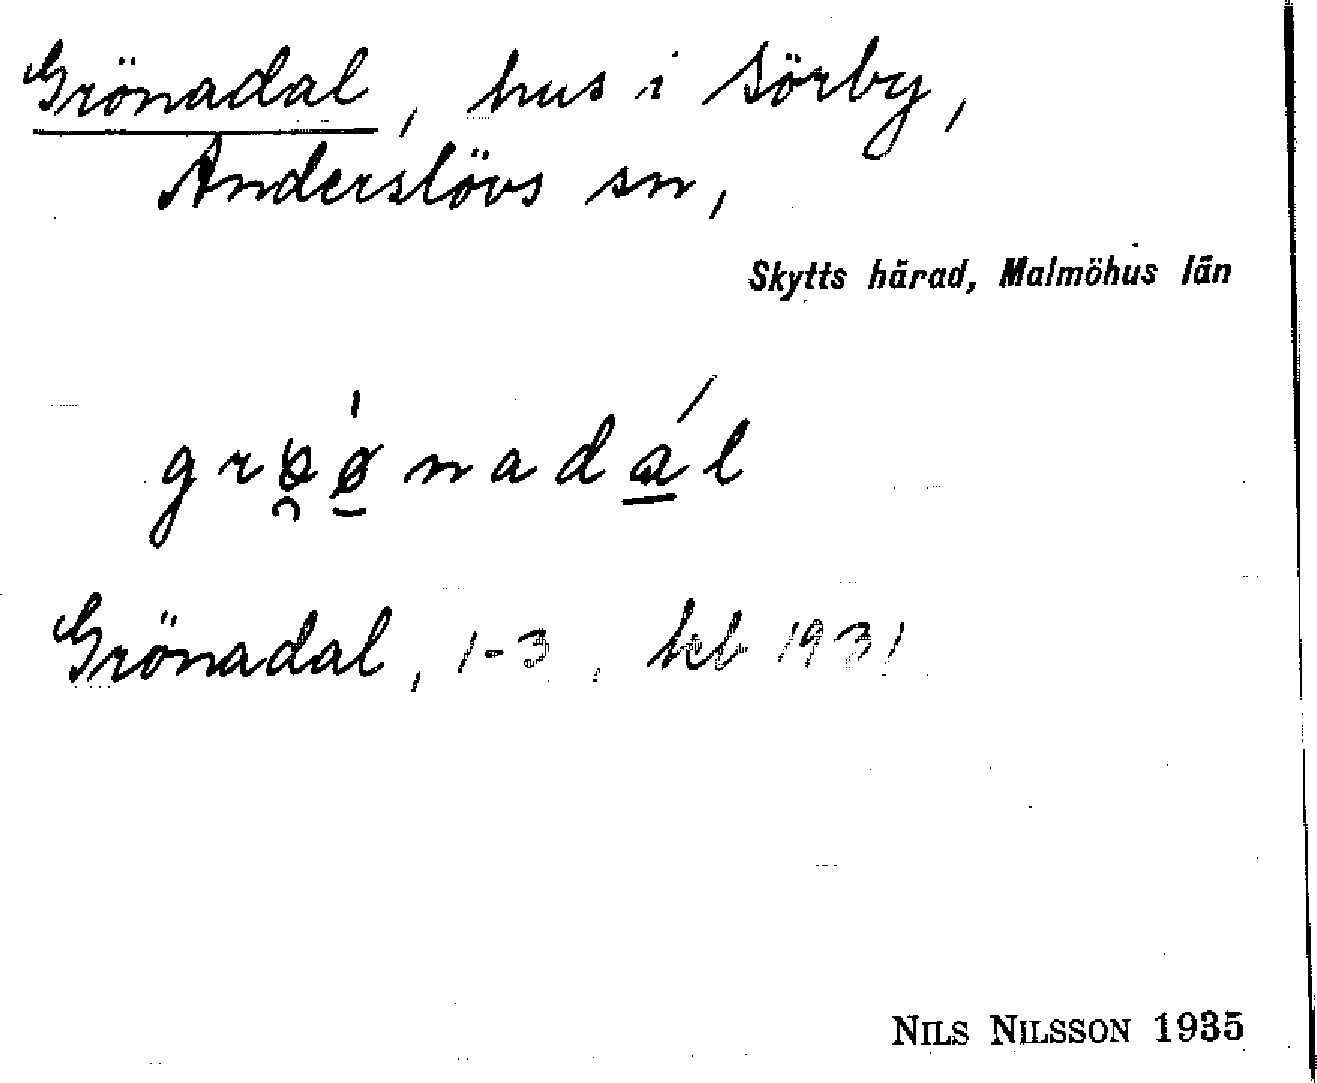 Grönadal, hus i Sörby,
Anderslövs sn,
Skytts härad, Malmöhus län
nadál
Grönadal, 1-3, 1931
NILS NILSSON 1935